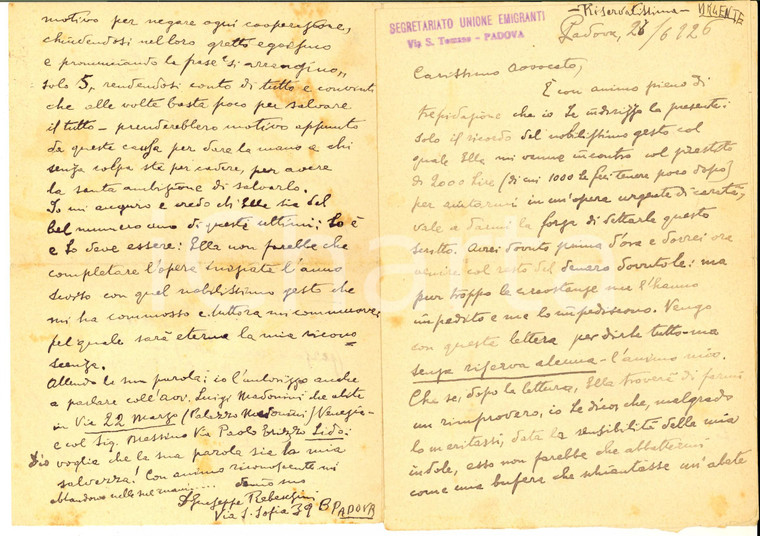 motivo per negare ogni cooperazione,
chiudendosi nel loro gretto egoismo
e pronunciando la frase "si arrangino",
solo 5, rendendosi conto di tutto e convinti
che alle volte basta poco per salvare
il tutto - prenderebbero motivo appunto
da queste cause per dare la mano a chi
senza colpa sta per cadere, per avere
la santa ambizione di salvarlo.
Io mi auguro e credo ch'Ella sia del
bel numero uno di questi ultimi; Lo è
e Lo deve essere: Ella non farebbe che
completare l'opera iniziata l'anno
scorso con quel nobilissimo gesto che
mi ha commosso e tuttora mi commuove;
pel quale sarà eterna la mia ricono
scenza.
Attendo la sua parola; io l'autorizzo anche
a parlare coll'avv. Luigi che abita
in Via 22 Marzo (Palazzo) Venezia -
e col Sig. Massino Via Paolo Erizzo Lido:
Dio voglia che la sua parola sia la mia
salvezza! Con animo riconoscente mi
abbandono nelle sue mani.... suo
Giuseppe
Via S. Sofia 39 B PADOVA
- Riservatissima - URGENTE
SEGRETARIATO UNIONE EMIGRANTI
Via S. Tomaso - PADOVA
Padova, 28/6 926
Carissimo Avvocato,
È con animo pieno di
trepidazione che io Le indirizzo la presente:
solo il ricordo del nobilissimo gesto col
quale Ella mi venne incontro col prestito
di 2000 Lire (di cui 1000 Le feci tenere poco dopo)
per aiutarmi in un'opera urgente di carità,
vale a darmi la forza di dettarle questo
scritto. Avrei dovuto prima d'ora e dovrei ora
venire col resto del denaro dovutole: ma
pur troppo le circostanze me l'hanno
impedito e me lo impediscono. Vengo
con questa lettera per dirle tutto - ma
senza riserva alcuna - l'animo mio.
Che se, dopo la lettura, Ella troverà di farmi
un rimprovero, io Le dico, che, malgrado
lo meritassi, data la sensibilità della mia
indole, esso non farebbe che abbattermi
come una bufera che schiantasse un'abete